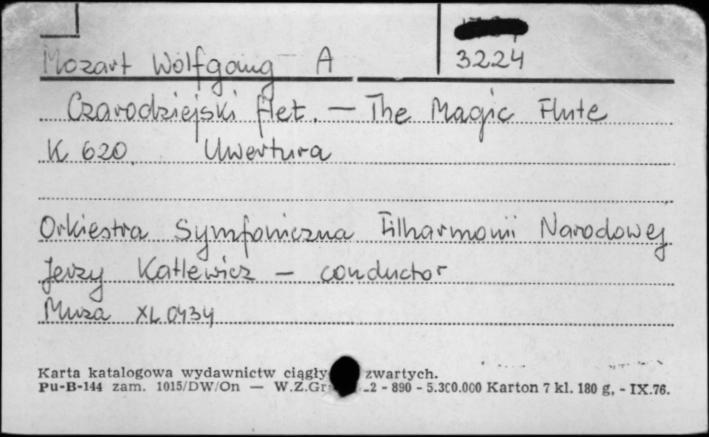 3224
Mozart Wolfgang A
Czarodziejski flet. — The Magic Flute
K 620. Uwertura
Orkiestra Symfoniczna Filharmonii Narodowej
Jerzy Katlewicz — conductor
Muza XL 0434
Karta katalogowa wydawnictw zwartych.
Pu-B-144 zam. 1015/DW/On — - 890 - 5.300.000 Karton 7 kl. 180 g, - IX.76.